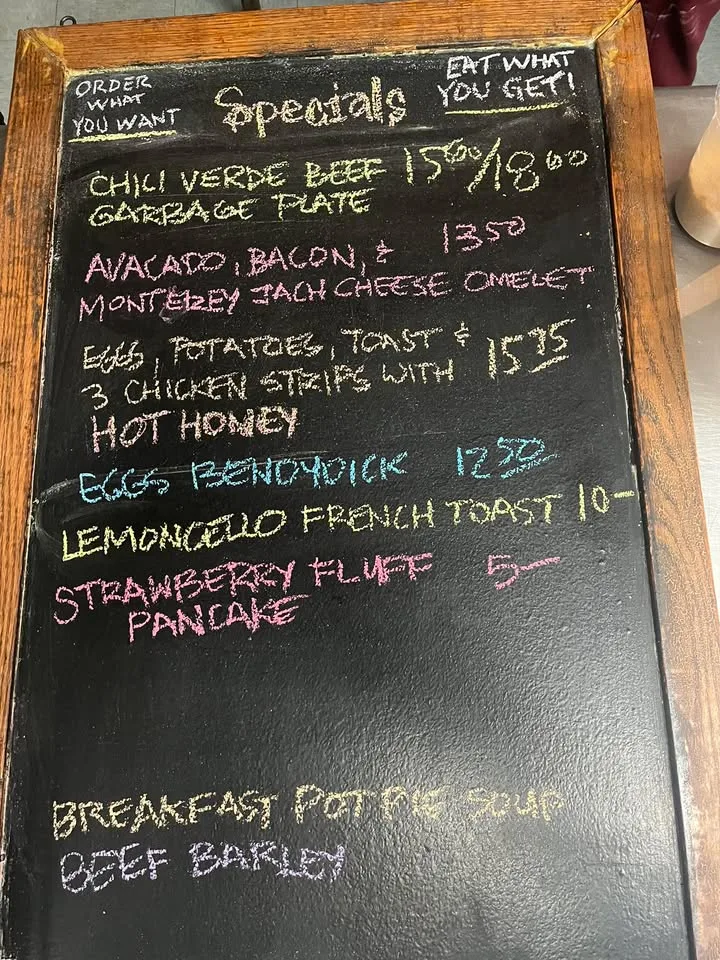 ORDER WHAT YOU WANT
Specials
EAT WHAT YOU GET!
CHILI VERDE BEEF 15⁰⁰/18⁰⁰
GARBAGE PLATE
AVACADO, BACON, & 13⁵⁰
MONTEREY JACH CHEESE OMELET
EGGS, POTATOES, TOAST & 15⁹⁵
3 CHICKEN STRIPS WITH
HOT HONEY
EGGS BENDYDICK 12⁵⁰
LEMONCELLO FRENCH TOAST 10-
STRAWBERRY FLUFF 5-
PANCAKE
BREAKFAST POT PIE SOUP
BEEF BARLEY